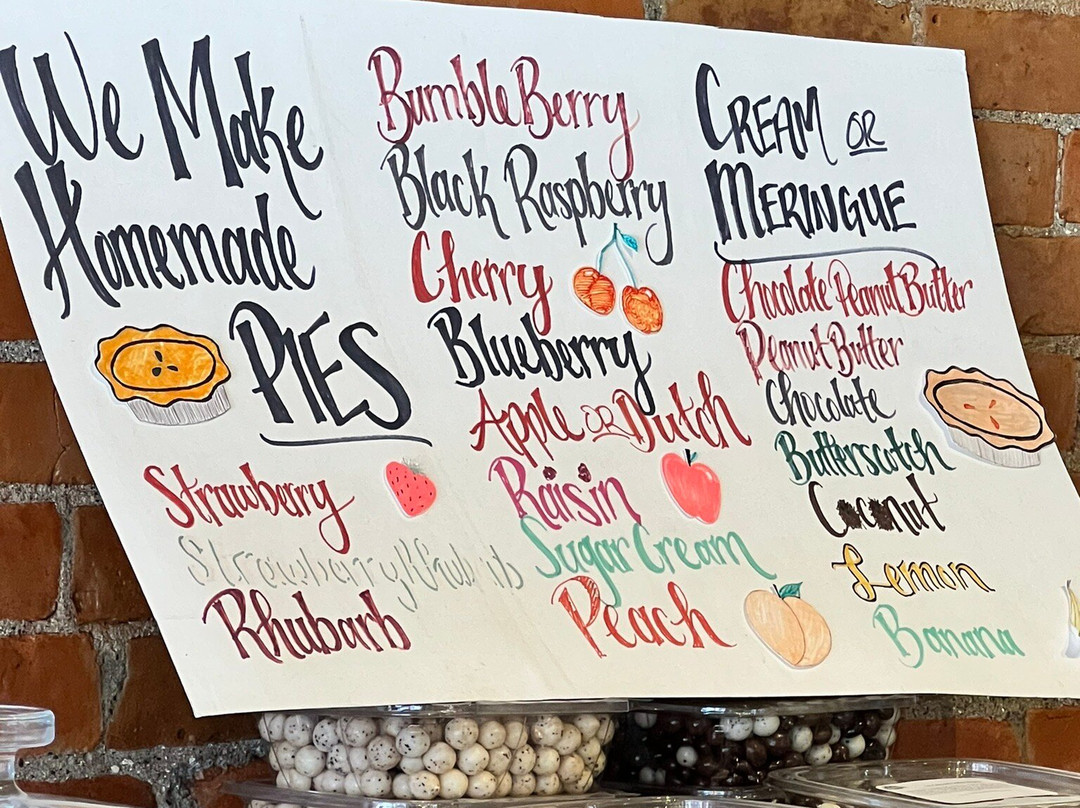 We Make
Homemade
PIES
Strawberry
Strawberry Rhubarb
Rhubarb
BumbleBerry
Black Raspberry
Cherry
Blueberry
Apple OR Dutch
Raisin
Sugar Cream
Peach
CREAM OR
MERINGUE
Chocolate Peanut Butter
Peanut Butter
Chocolate
Butterscotch
Coconut
Lemon
Banana